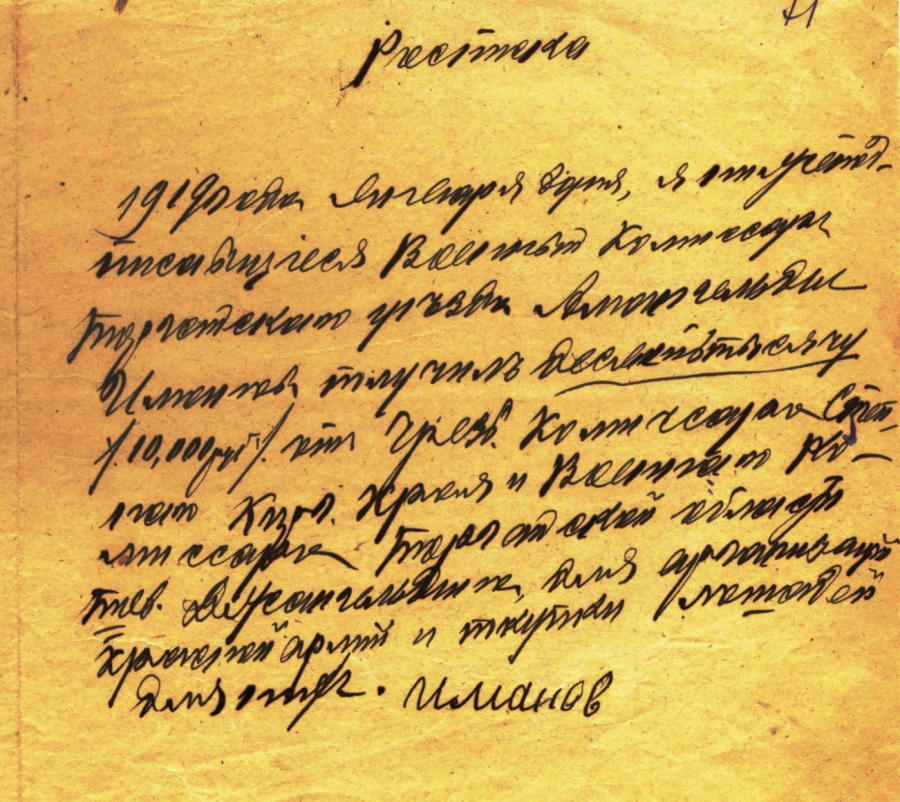 71
Росписка
1919 года Января 8 дня, я нижепод-
писавшіеся Военный Комиссаръ
Тургайскаго уѣзда Амангельды
Имановъ получилъ десять тысячу
/10,000 руб/. отъ Чрезв. Комиссара Степ-
ного Кирг. Края и Военнаго Ко-
миссара Тургайской области
тов. Джангильдина, для организаціи
Красной арміи и покупки лошадей
для нихъ. Иманов